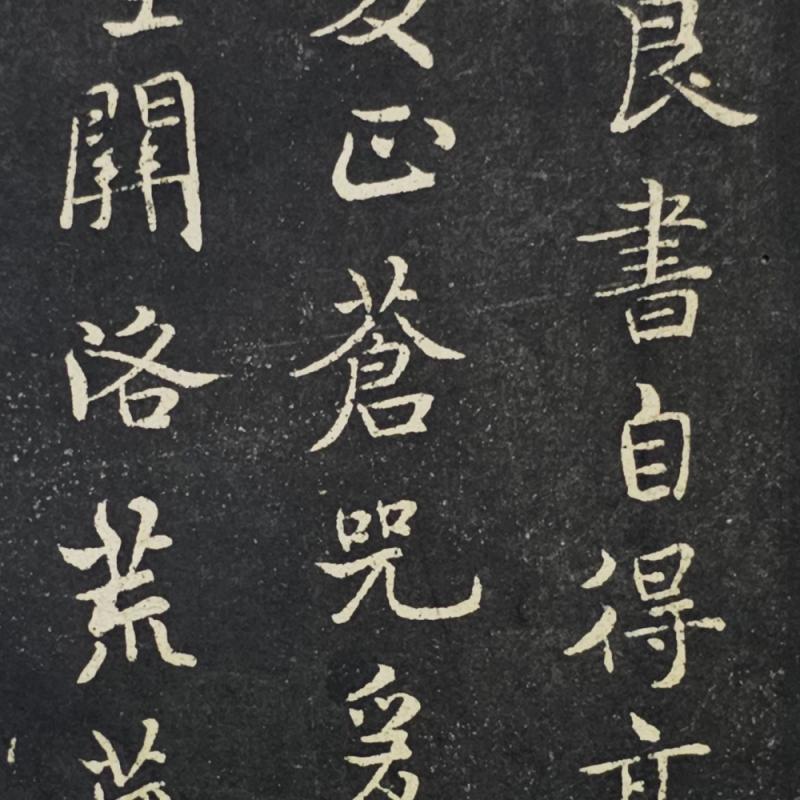 良書自得
正蒼兕爰
關洛荒